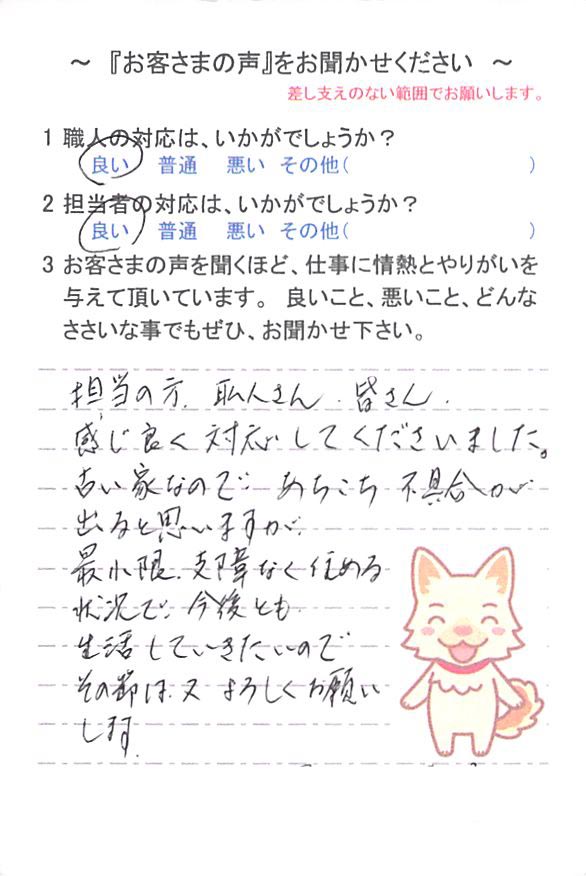 ～ 『お客さまの声』をお聞かせください ～
差し支えのない範囲でお願いします。
1 職人の対応は、いかがでしょうか？
良い 普通 悪い その他( )
2 担当者の対応は、いかがでしょうか？
良い 普通 悪い その他( )
3 お客さまの声を聞くほど、仕事に情熱とやりがいを
与えて頂いています。 良いこと、悪いこと、どんな
ささいな事でもぜひ、お聞かせ下さい。
担当の方、職人さん、皆さん、
感じ良く対応してくださいました。
古い家なので、あちこち不具合が
出ると思いますが、
最小限、支障なく住める
状況で、今後とも
生活していきたいので
その節は又よろしくお願い
します。